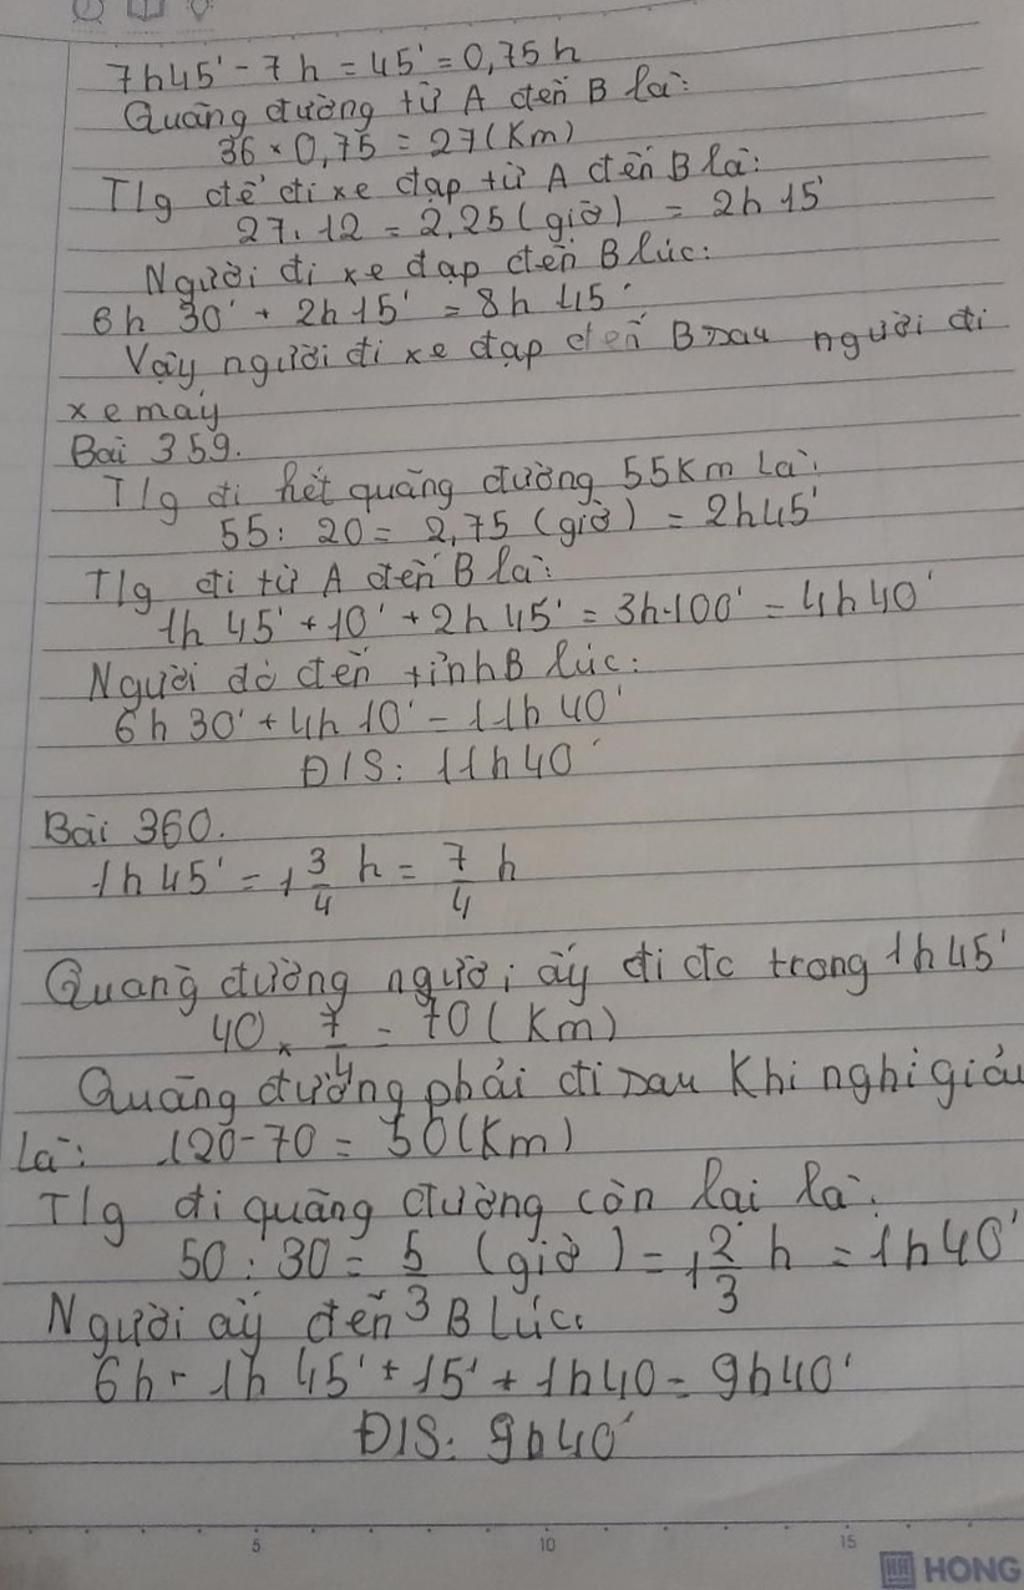 7h45' - 7h = 45' = 0,75h
Quãng đường từ A đến B là:
36 × 0,75 = 27(Km)
T/g để đi xe đạp từ A đến B là:
27 : 12 = 2,25 (giờ) = 2h 15'
Người đi xe đạp đến B lúc:
6h 30' + 2h 15' = 8h 45'
Vậy người đi xe đạp đến B sau người đi
xe máy
Bài 359.
T/g đi hết quãng đường 55Km là:
55 : 20 = 2,75 (giờ) = 2h45'
T/g đi từ A đến B là:
1h 45' + 10' + 2h 45' = 3h 100' = 4h40'
Người đó đến tỉnh B lúc:
6h 30' + 4h 10' = 11h 40'
Đ/S: 11h40'
Bài 360.
1h 45' = 1 3/4 h = 7/4 h
Quãng đường người ấy đi đc trong 1h45'
40 × 7/4 = 70 (Km)
Quãng đường phải đi sau Khi nghỉ giải
là: 120-70 = 50(Km)
T/g đi quãng đường còn lại là:
50 : 30 = 5/3 (giờ) = 1 2/3 h = 1h40'
Người ấy đến B lúc:
6h + 1h 45' + 15' + 1h40 = 9h40'
Đ/S: 9h40'
5 10 15
HONG